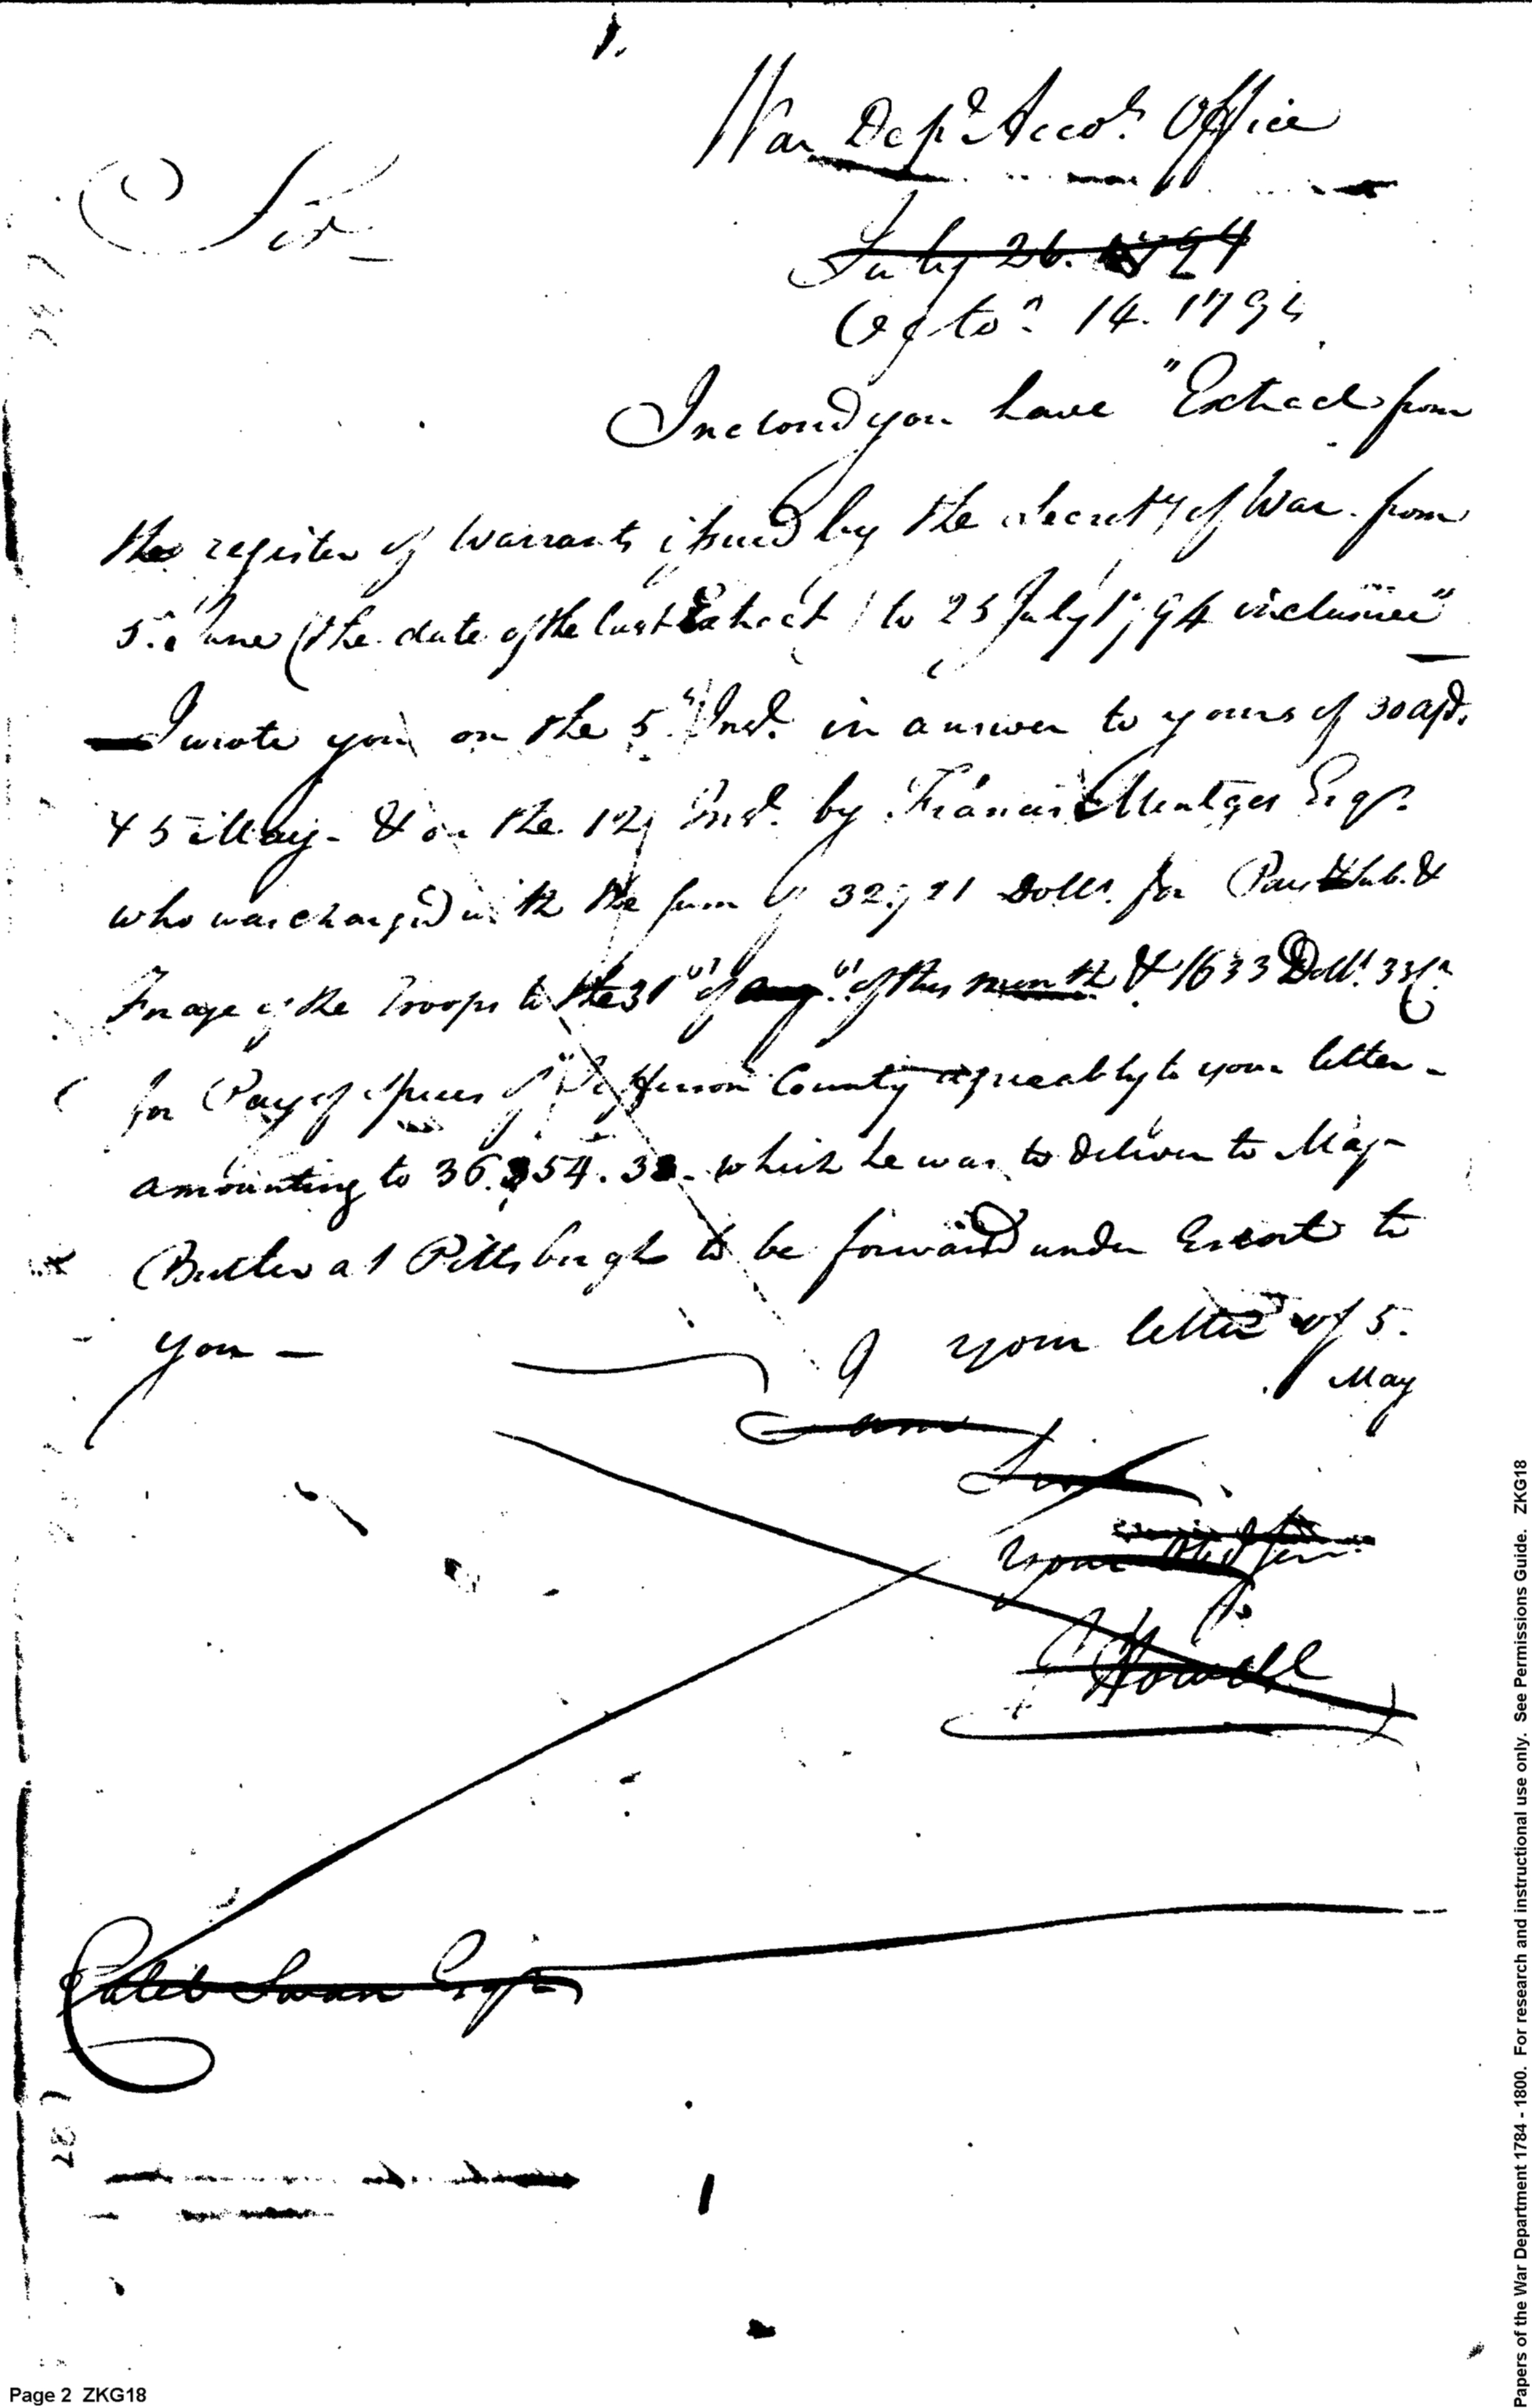 1.
War Dept. Accots. Office
Sir
July 26. 1794
Octor. 14. 1794
Inclosed you have "Extract from
the register of Warrants issued by the Secrety of War from
5. June (the date of the last Extract) to 25 July 1794 inclusive"
I wrote you on the 5th Inst. in answer to yours of 30 apl.
& 5 May - & on the 12 Inst. by Francis Mentges Esqr.
who was charged with the sum of 32,721 Dolls. for Pay Sub. &
Forage of the Troops to the 31st of augt. of this month & 1633 Dolls. 33 Cts.
for Pay of Spies of Jefferson County agreeably to your letter -
amounting to 36.354.33 - which he was to deliver to Majr
Butler at Pittsburgh to be forward under Escort to
you — I your letter of 5.
May
am
Sir
Your Obed Serv.
J Howell
Caleb Swan Esqr
287
Page 2 ZKG18
Papers of the War Department 1784 - 1800. For research and instructional use only. See Permissions Guide. ZKG18